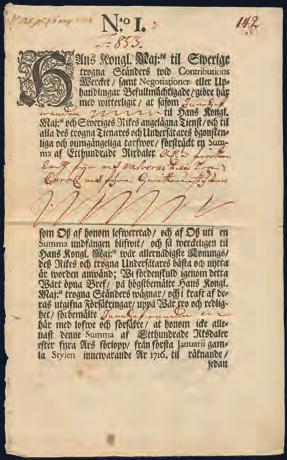 142
N:o I.
855.
Hans Kongl. Maj:tz til Swerige
trogna Ständers wid Contributions
Wercket/ samt Negotiationer eller Up-
handlingar Befullmächtigade/ giöre här
med witterligit/ at såsom
til Hans Kongl.
Maj:tz och Sweriges Rikes angelägna Tienst/ och til
alla des trogna Tienares och Undersåtares ögonsken-
liga och oumgängeliga tarfwor/ försträckt en Sum-
ma af Etthundrade Rixdaler
som Oß af honom lefwererad/ och af Oß uti en
Summa undfången blifwit/ och så wercteligen til
Hans Kongl. Maj:tz wår allernådigste Konungs/
des Rikes och trogna Undersåtares bästa och nytta
är worden anwänd; Wi fördenskuld igenom detta
Wårt öpna Bref/ på högstbemälte Hans Kongl.
Maj:tz trogna Ständers wägnar/ och i kraft af de-
ras utgifna Försäkringar/ uppå Wår tro och redlig-
het/ förbemälte
här med lofwe och försäkre/ at honom icke alle-
nast denne Summa af Etthundrade Riksdaler
efter fyra Års förlopp/ från första Januarii gam-
la Stylen innewarande År 1716. til räknande/
sedan